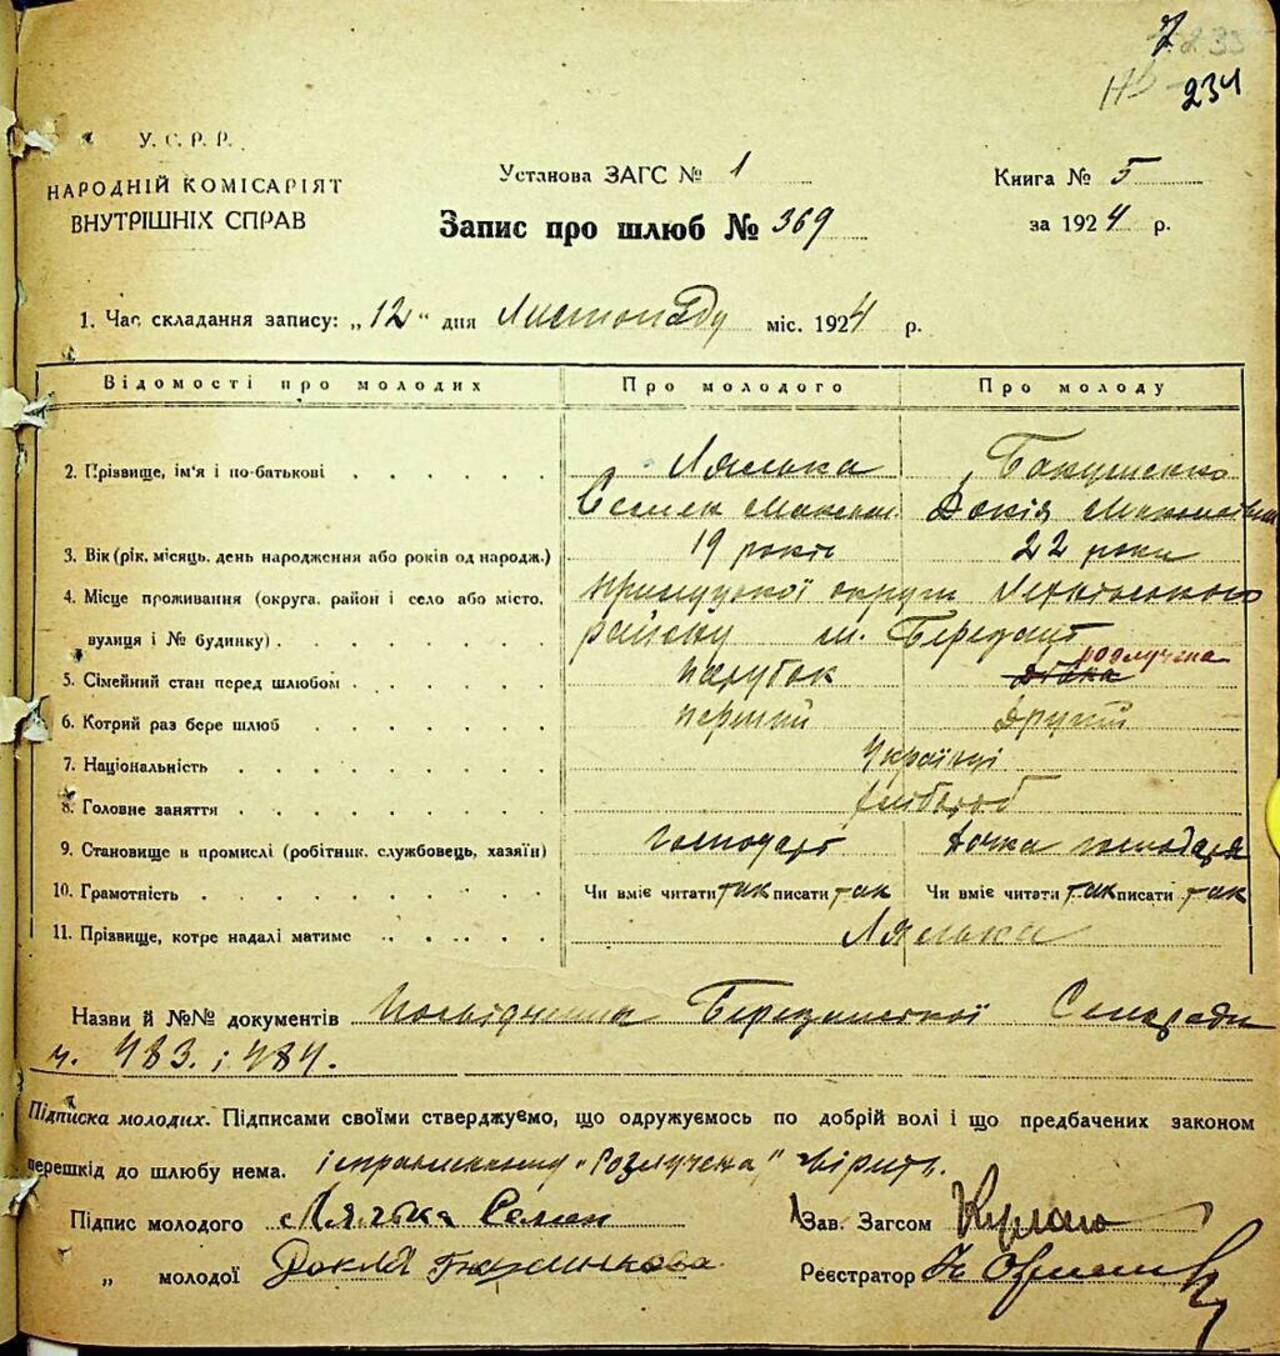 7
234
У. С. Р. Р.
НАРОДНІЙ КОМІСАРІЯТ
ВНУТРІШНІХ СПРАВ
Установа ЗАГС № 1
Книга № 5
Запис про шлюб № 369
за 1924 р.
1. Час складання запису: „12“ дня Листопаду міс. 1924 р.
Відомості про молодих Про молодого Про молоду
2. Прізвище, ім'я і по-батькові Лялька
Семен Докія
3. Вік (рік, місяць, день народження або років од народж.) 19 років 22 роки
4. Місце проживання (округа, район і село або місто, Прилуцкої округи
вулиця і № будинку) району м. Березань
розлучена
5. Сімейний стан перед шлюбом парубок дівка
6. Котрий раз бере шлюб перший другий
7. Національність Українці
8. Головне заняття хлібороб
9. Становище в промислі (робітник, службовець, хазяїн) господарь дочка господаря
10. Грамотність Чи вміє читати так писати так Чи вміє читати так писати так
11. Прізвище, котре надалі матиме Лялька
Назви й №№ документів Посвідчення Березанської Сельради
ч. 483. і 484.
Підписка молодих. Підписами своїми стверджуємо, що одружуємось по добрій волі і що предбачених законом
перешкід до шлюбу нема. "Розлучена" вірить.
Підпис молодого Лялька Семен
Зав. Загсом
„ молодої
Реєстратор